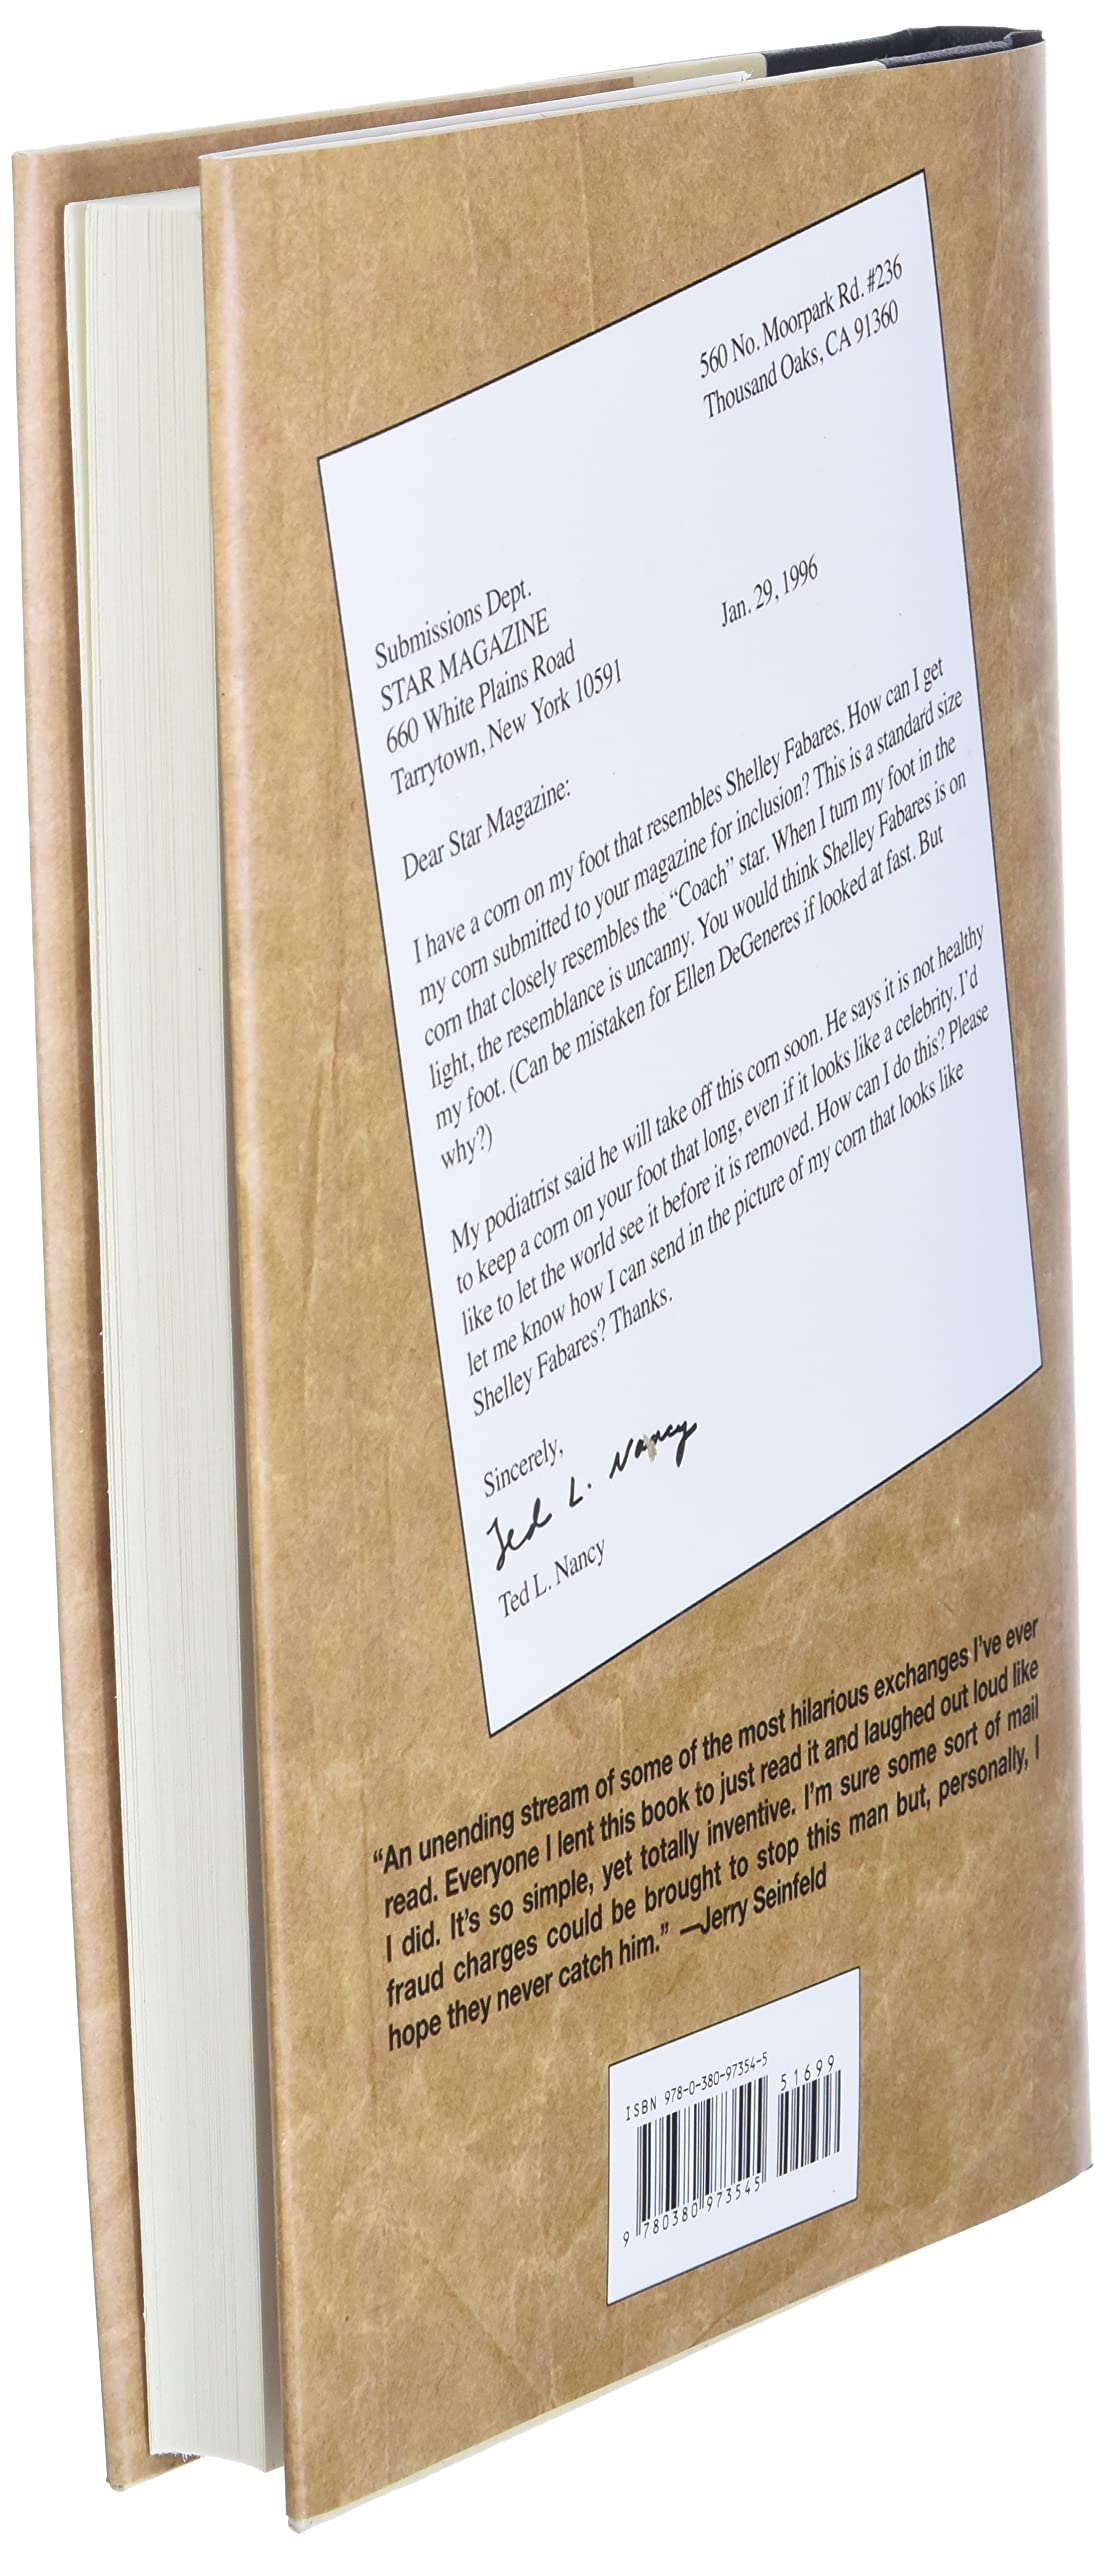 560 No. Moorpark Rd. #236
Thousand Oaks, CA 91360
Jan. 29, 1996
Submissions Dept.
STAR MAGAZINE
660 White Plains Road
Tarrytown, New York 10591
Dear Star Magazine:
I have a corn on my foot that resembles Shelley Fabares. How can I get
my corn submitted to your magazine for inclusion? This is a standard size
corn that closely resembles the “Coach” star. When I turn my foot in the
light, the resemblance is uncanny. You would think Shelley Fabares is on
my foot. (Can be mistaken for Ellen DeGeneres if looked at fast. But
why?)
My podiatrist said he will take off this corn soon. He says it is not healthy
to keep a corn on your foot that long, even if it looks like a celebrity. I’d
like to let the world see it before it is removed. How can I do this? Please
let me know how I can send in the picture of my corn that looks like
Shelley Fabares? Thanks.
Sincerely,
Ted L. Nancy
Ted L. Nancy
“An unending stream of some of the most hilarious exchanges I’ve ever
read. Everyone I lent this book to just read it and laughed out loud like
I did. It’s so simple, yet totally inventive. I’m sure some sort of mail
fraud charges could be brought to stop this man but, personally, I
hope they never catch him.” —Jerry Seinfeld
ISBN 978-0-380-97354-5
51699
9 780380 973545